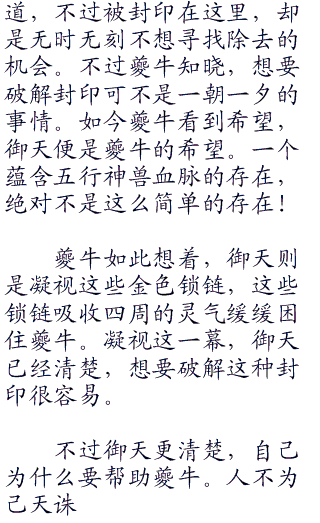 道，不过被封印在这里，却
是无时无刻不想寻找除去的
机会。不过夔牛知晓，想要
破解封印可不是一朝一夕的
事情。如今夔牛看到希望，
御天便是夔牛的希望。一个
蕴含五行神兽血脉的存在，
绝对不是这么简单的存在！
夔牛如此想着，御天则
是凝视这些金色锁链，这些
锁链吸收四周的灵气缓缓困
住夔牛。凝视这一幕，御天
已经清楚，想要破解这种封
印很容易。
不过御天更清楚，自己
为什么要帮助夔牛。人不为
己天诛